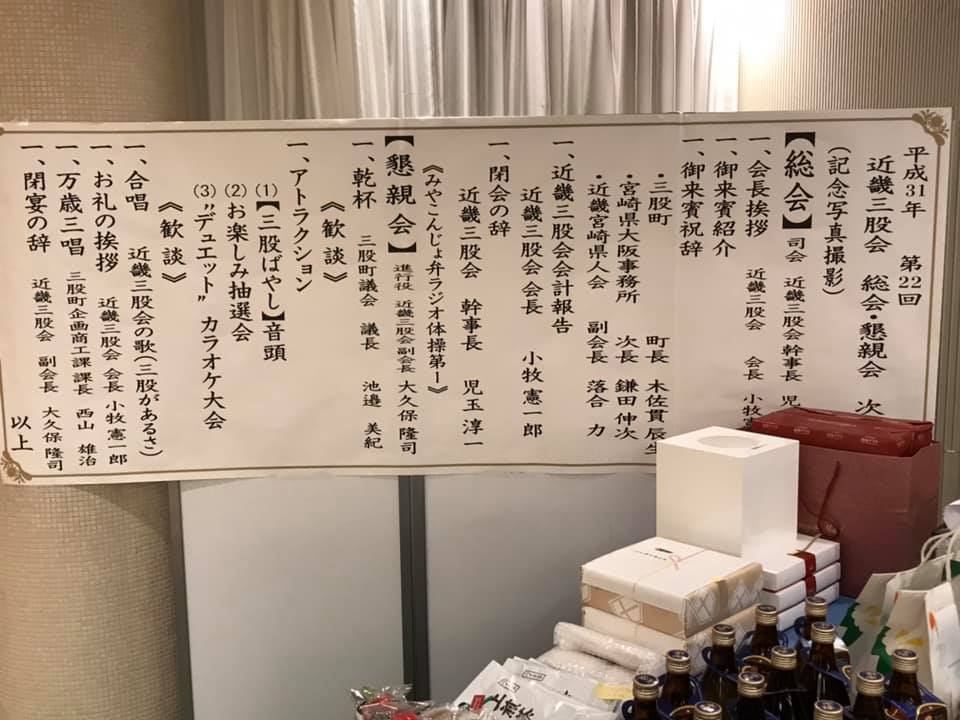 平成31年 第22回
近畿三股会 総会・懇親会 次
(記念写真撮影)
【総会】 司会 近畿三股会幹事長 児
一、会長挨拶 近畿三股会 会長 小牧
一、御来賓紹介
一、御来賓祝辞
・三股町 町長 木佐貫 辰生
・宮崎県大阪事務所 次長 鎌田 伸次
・近畿宮崎県人会 副会長 落合 力
一、近畿三股会会計報告
近畿三股会 会長 小牧 憲一郎
一、閉会の辞
近畿三股会 幹事長 児玉 淳一
《みやこんじょ弁ラジオ体操第一》
【懇親会】 進行役 近畿三股会副会長 大久保 隆司
一、乾杯 三股町議会 議長 池邉 美紀
《歓談》
一、アトラクション
(1)【三股ばやし】音頭
(2)お楽しみ抽選会
(3)”デュエット” カラオケ大会
《歓談》
一、合唱 近畿三股会の歌(三股があるさ)
一、お礼の挨拶 近畿三股会 会長 小牧 憲一郎
一、万歳三唱 三股町企画商工課課長 西山 雄治
一、閉宴の辞 近畿三股会 副会長 大久保 隆司
以上